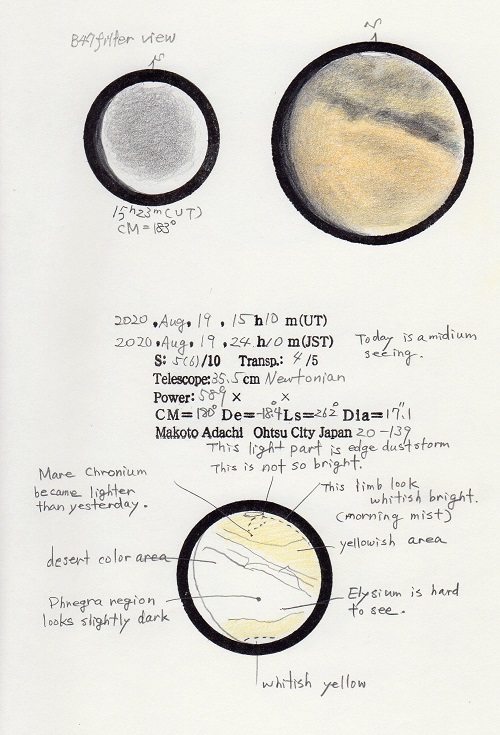 B47 filter view
N
N
15h23m(UT)
CM=183°
2020, Aug. 19, 15 h10 m(UT)
2020, Aug. 19, 24 h10 m(JST)
Today is a midium
seeing.
S: 5(6)/10 Transp.: 4/5
Telescope:35.5cm Newtonian
Power: 589 × ×
CM=180° De=-18.4° Ls=262° Dia=17".1
Makoto Adachi Ohtsu City Japan 20-139
This light part is edge duststorm
This is not so bright.
Mare Chronium
became lighter
than yesterday.
This limb look
whitish bright.
(morning mist)
yellowish area
desert color area
Phnegra region
looks slightly dark
Elysium is hard
to see.
whitish yellow